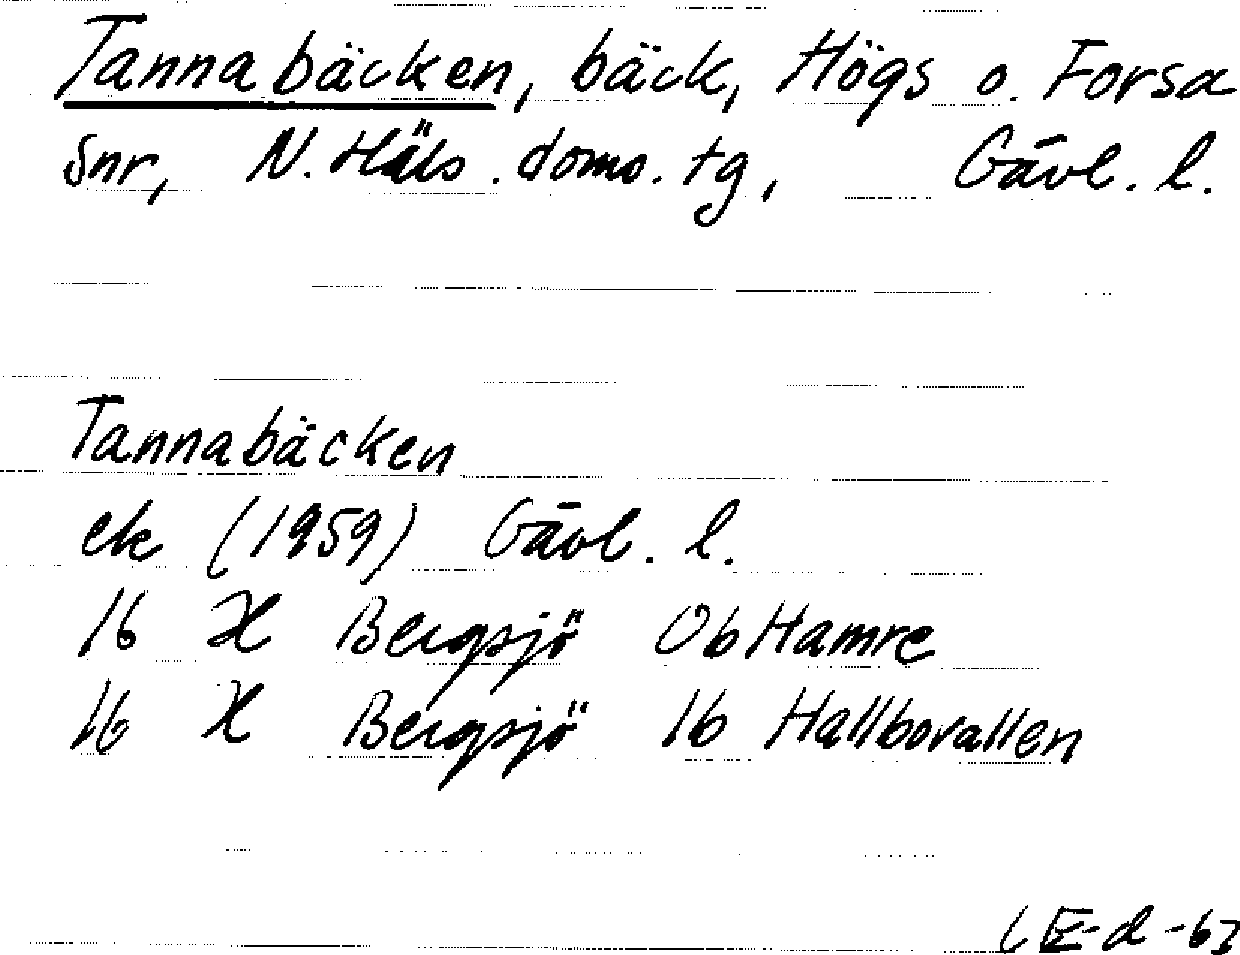 Tannabäcken, bäck, Högs o. Forsa
snr, N. Häls. doms. tg, Gävl. l.
Tannabäcken
ek (1959) Gävl. l.
16 H Bergsjö 0b Hamre
16 H Bergsjö 1b Hallbovallen